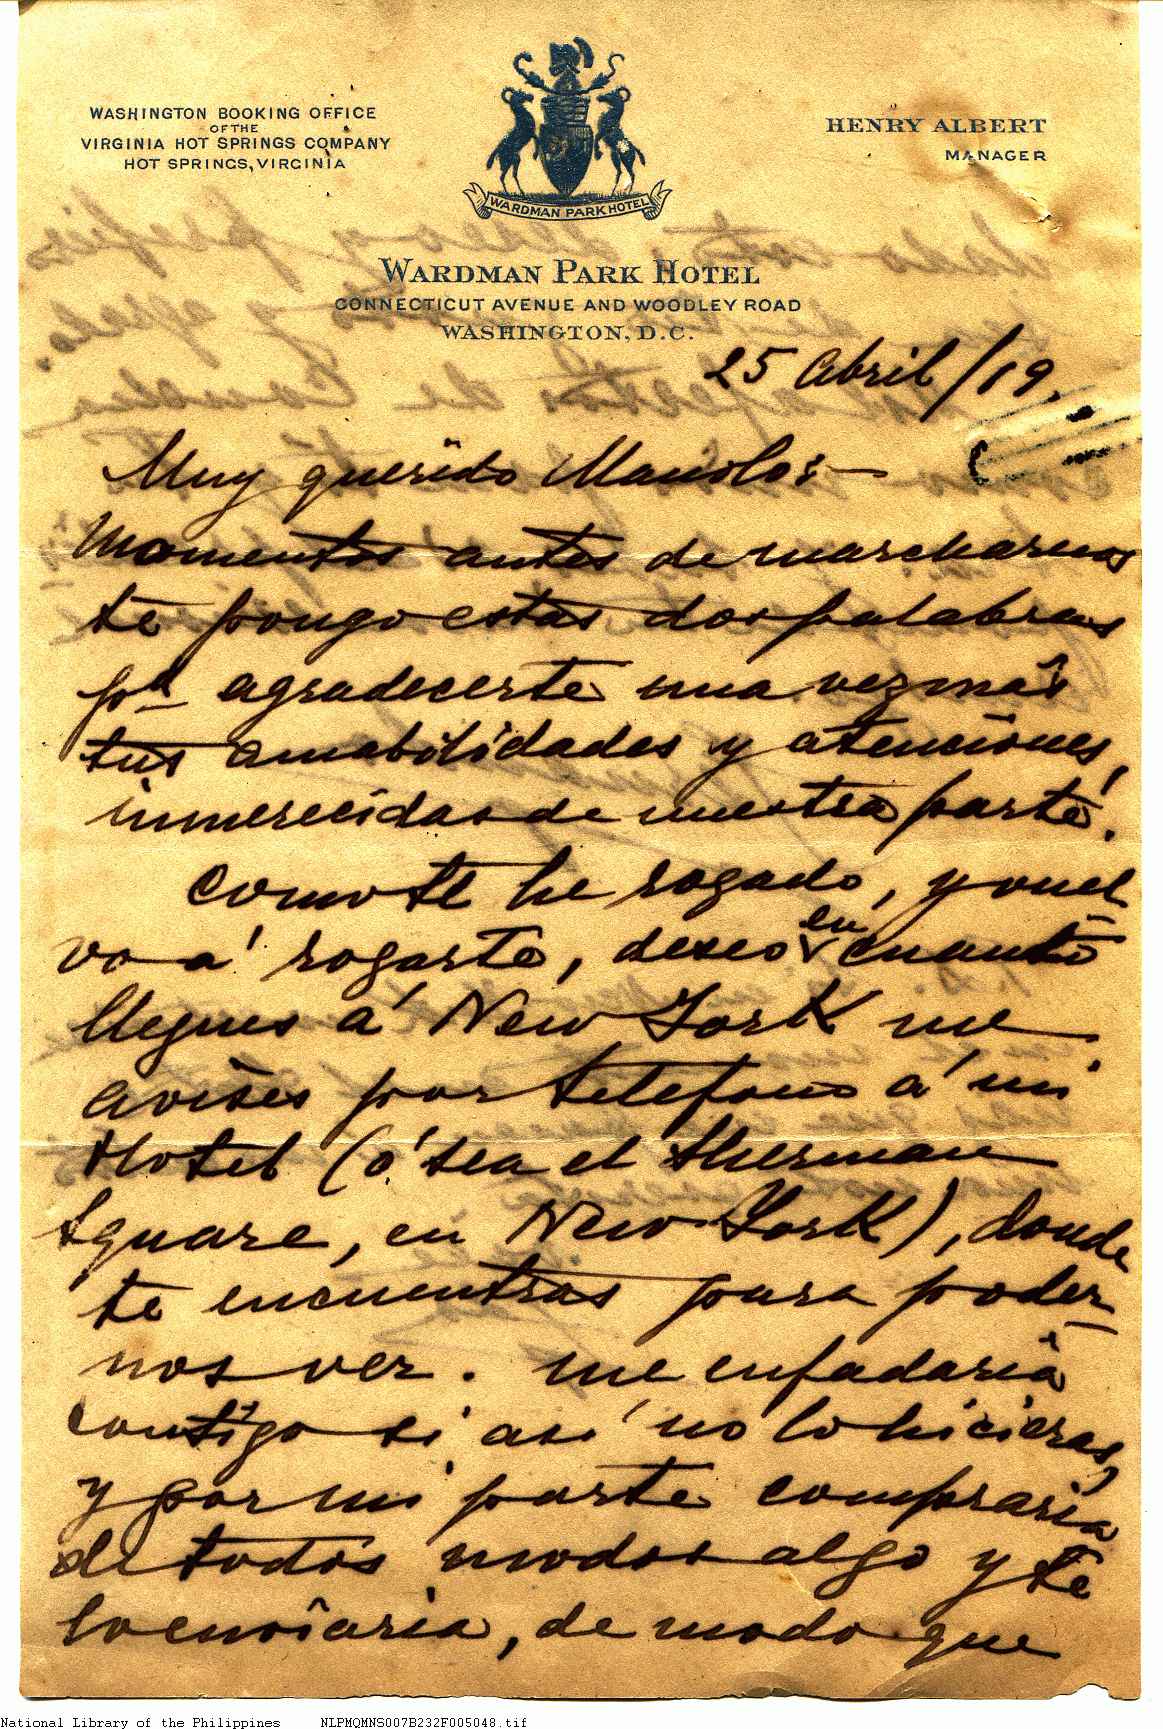 WASHINGTON BOOKING OFFICE
OF THE
VIRGINIA HOT SPRINGS COMPANY
HOT SPRINGS, VIRGINIA
HENRY ALBERT
MANAGER
WARDMAN PARK HOTEL
WARDMAN PARK HOTEL
CONNECTICUT AVENUE AND WOODLEY ROAD
WASHINGTON, D.C.
25 Abril/19.
Muy querido Manolo:—
Momentos antes de marcharnos
te pongo estas dos palabras
pª agradecerte una vez más
tus amabilidades y atenciones,
inmerecidas de nuestra parte.
Como te he rogado, y vuel
vo á rogarte, deseo en cuanto
llegues á New York me
avises por telefono á mi
Hotel (ó sea el Sherman
Square, en New York), donde
te encuentras para poder-
nos ver. Me enfadaria
contigo si así no lo hicieras,
y por mi parte compraria
de todos modos algo y te
lo enviaria, de modo que
National Library of the Philippines NLPMQMNS007B232F005048.tif